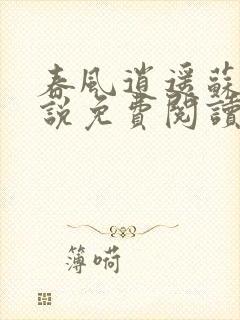 春風逍遥蘇
説免費閱讀
簿嗬